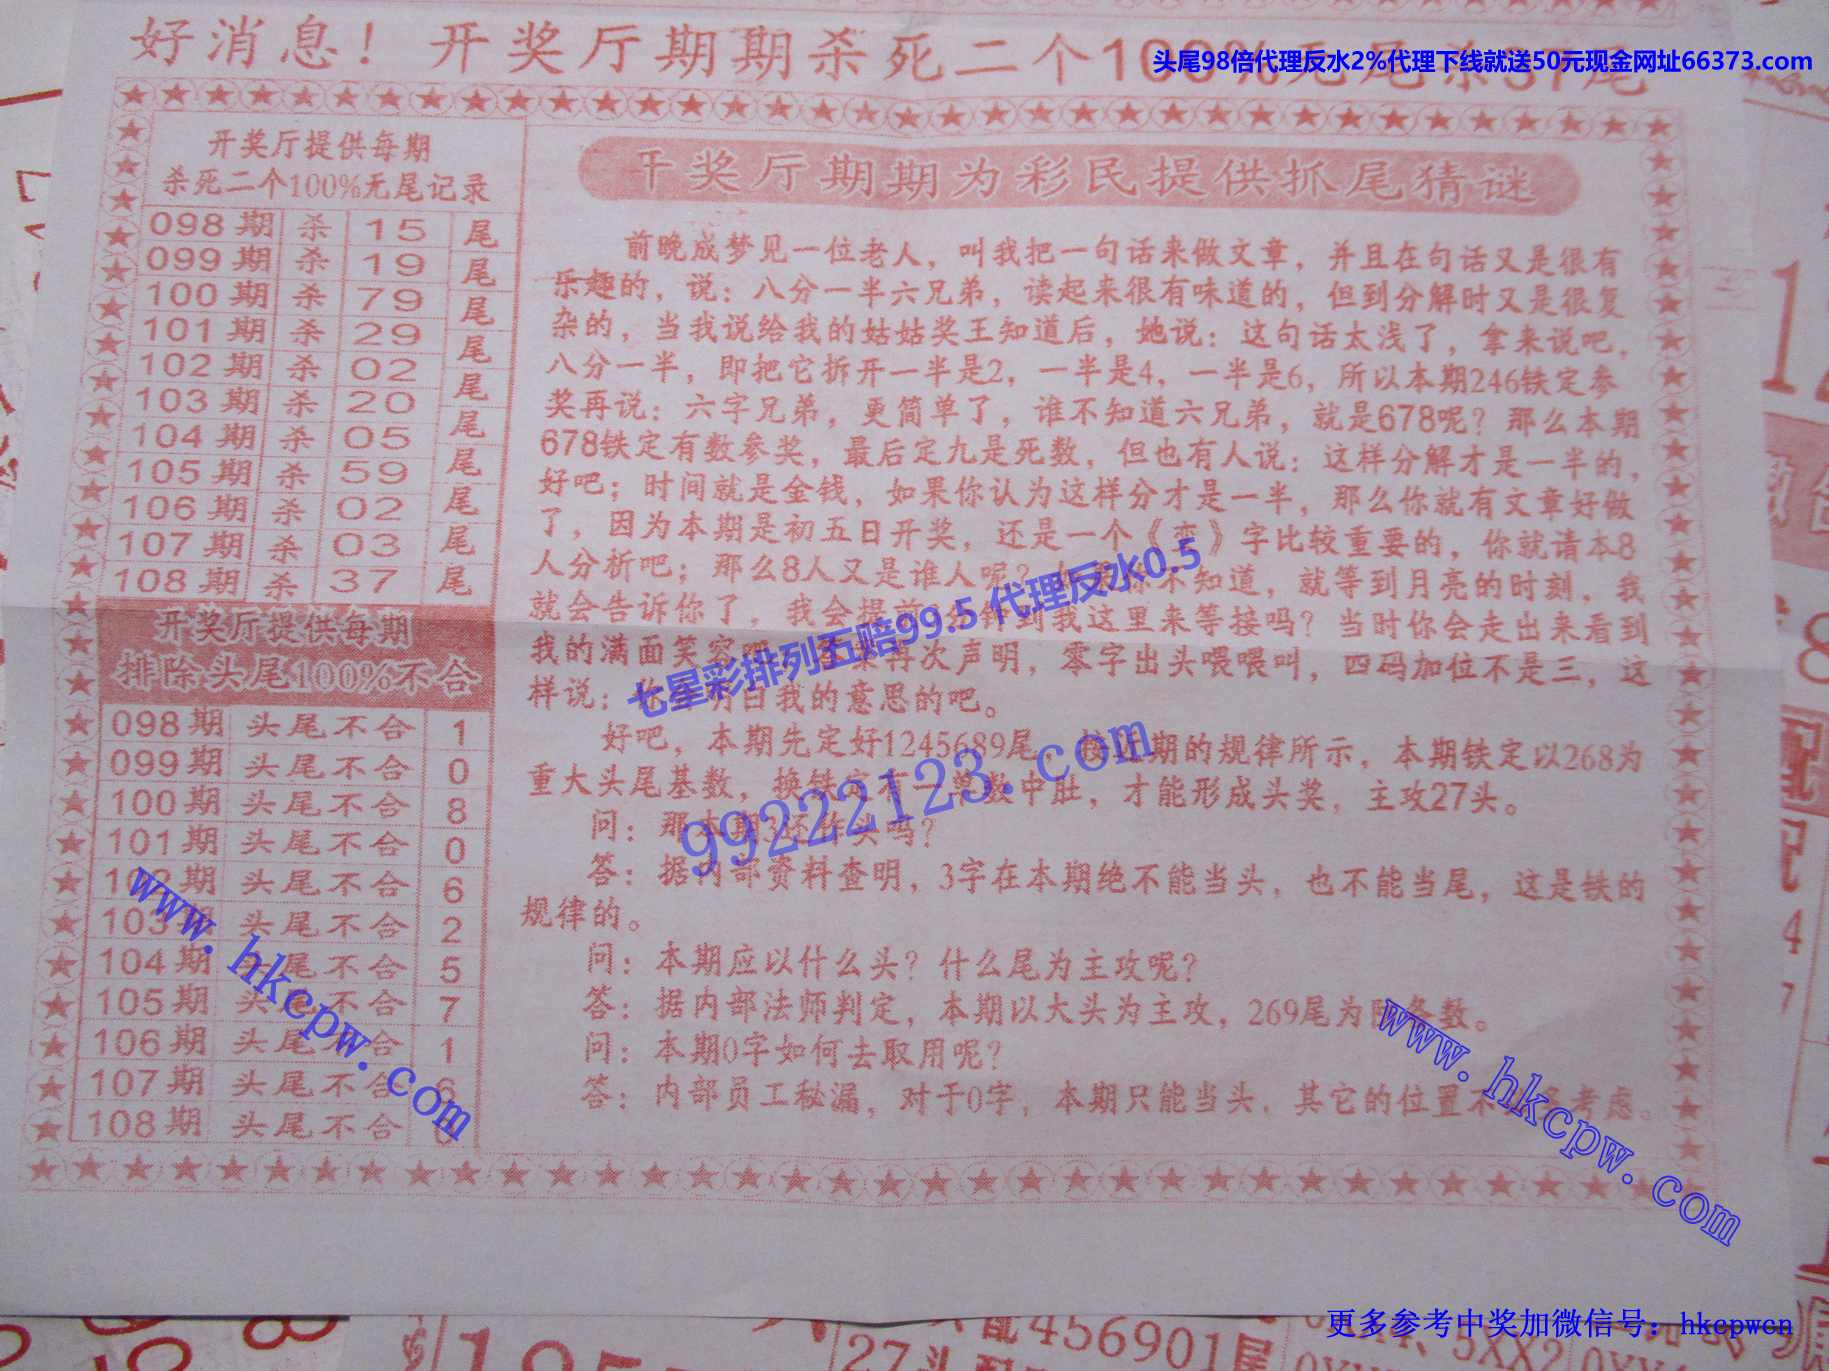 好消息！开奖厅期期杀死二个100%无尾杀37尾
头尾98倍代理反水2%代理下线就送50元现金网址66373.com
开奖厅提供每期
杀死二个100%无尾记录
098期 杀 15 尾
099期 杀 19 尾
100期 杀 79 尾
101期 杀 29 尾
102期 杀 02 尾
103期 杀 20 尾
104期 杀 05 尾
105期 杀 59 尾
106期 杀 02 尾
107期 杀 03 尾
108期 杀 37 尾
开奖厅提供每期
排除头尾100%不合
098期 头尾不合 1
099期 头尾不合 0
100期 头尾不合 8
101期 头尾不合 0
102期 头尾不合 6
103期 头尾不合 2
104期 头尾不合 5
105期 头尾不合 7
106期 头尾不合 1
107期 头尾不合 6
108期 头尾不合
开奖厅期期为彩民提供抓尾猜谜
前晚成梦见一位老人，叫我把一句话来做文章，并且在句话又是很有
乐趣的，说：八分一半六兄弟，读起来很有味道的，但到分解时又是很复
杂的，当我说给我的姑姑奖王知道后，她说：这句话太浅了，拿来说吧，
八分一半，即把它拆开一半是2，一半是4，一半是6，所以本期246铁定参
奖再说：六字兄弟，更简单了，谁不知道六兄弟，就是678呢？那么本期
678铁定有数参奖，最后定九是死数，但也有人说：这样分解才是一半的，
好吧；时间就是金钱，如果你认为这样分才是一半，那么你就有文章好做
了，因为本期是初五日开奖，还是一个《》字比较重要的，你就请本8
人分析吧；那么8人又是谁人呢？不知道，就等到月亮的时刻，我
就会告诉你了，我会提前到我这里来等接吗？当时你会走出来看到
我的满面笑容再次声明，零字出头喂喂叫，四码加位不是三，这
样说：你明白我的意思的吧。
好吧，本期先定好1245689尾，按近期的规律所示，本期铁定以268为
重大头尾基数，换铁定有一单数中肚，才能形成头奖，主攻27头。
问：那本期3还作头吗？
答：据内部资料查明，3字在本期绝不能当头，也不能当尾，这是铁的
规律的。
问：本期应以什么头？什么尾为主攻呢？
答：据内部法师判定，本期以大头为主攻，269尾为防备数。
问：本期0字如何去取用呢？
答：内部员工秘漏，对于0字，本期只能当头，其它的位置不考虑。
七星彩排列五赔99.5 代理反水0.5
99222123.com
www.hkcpw.com
www.hkcpw.com
更多参考中奖加微信号：hkcpwcn
配456901尾
27头